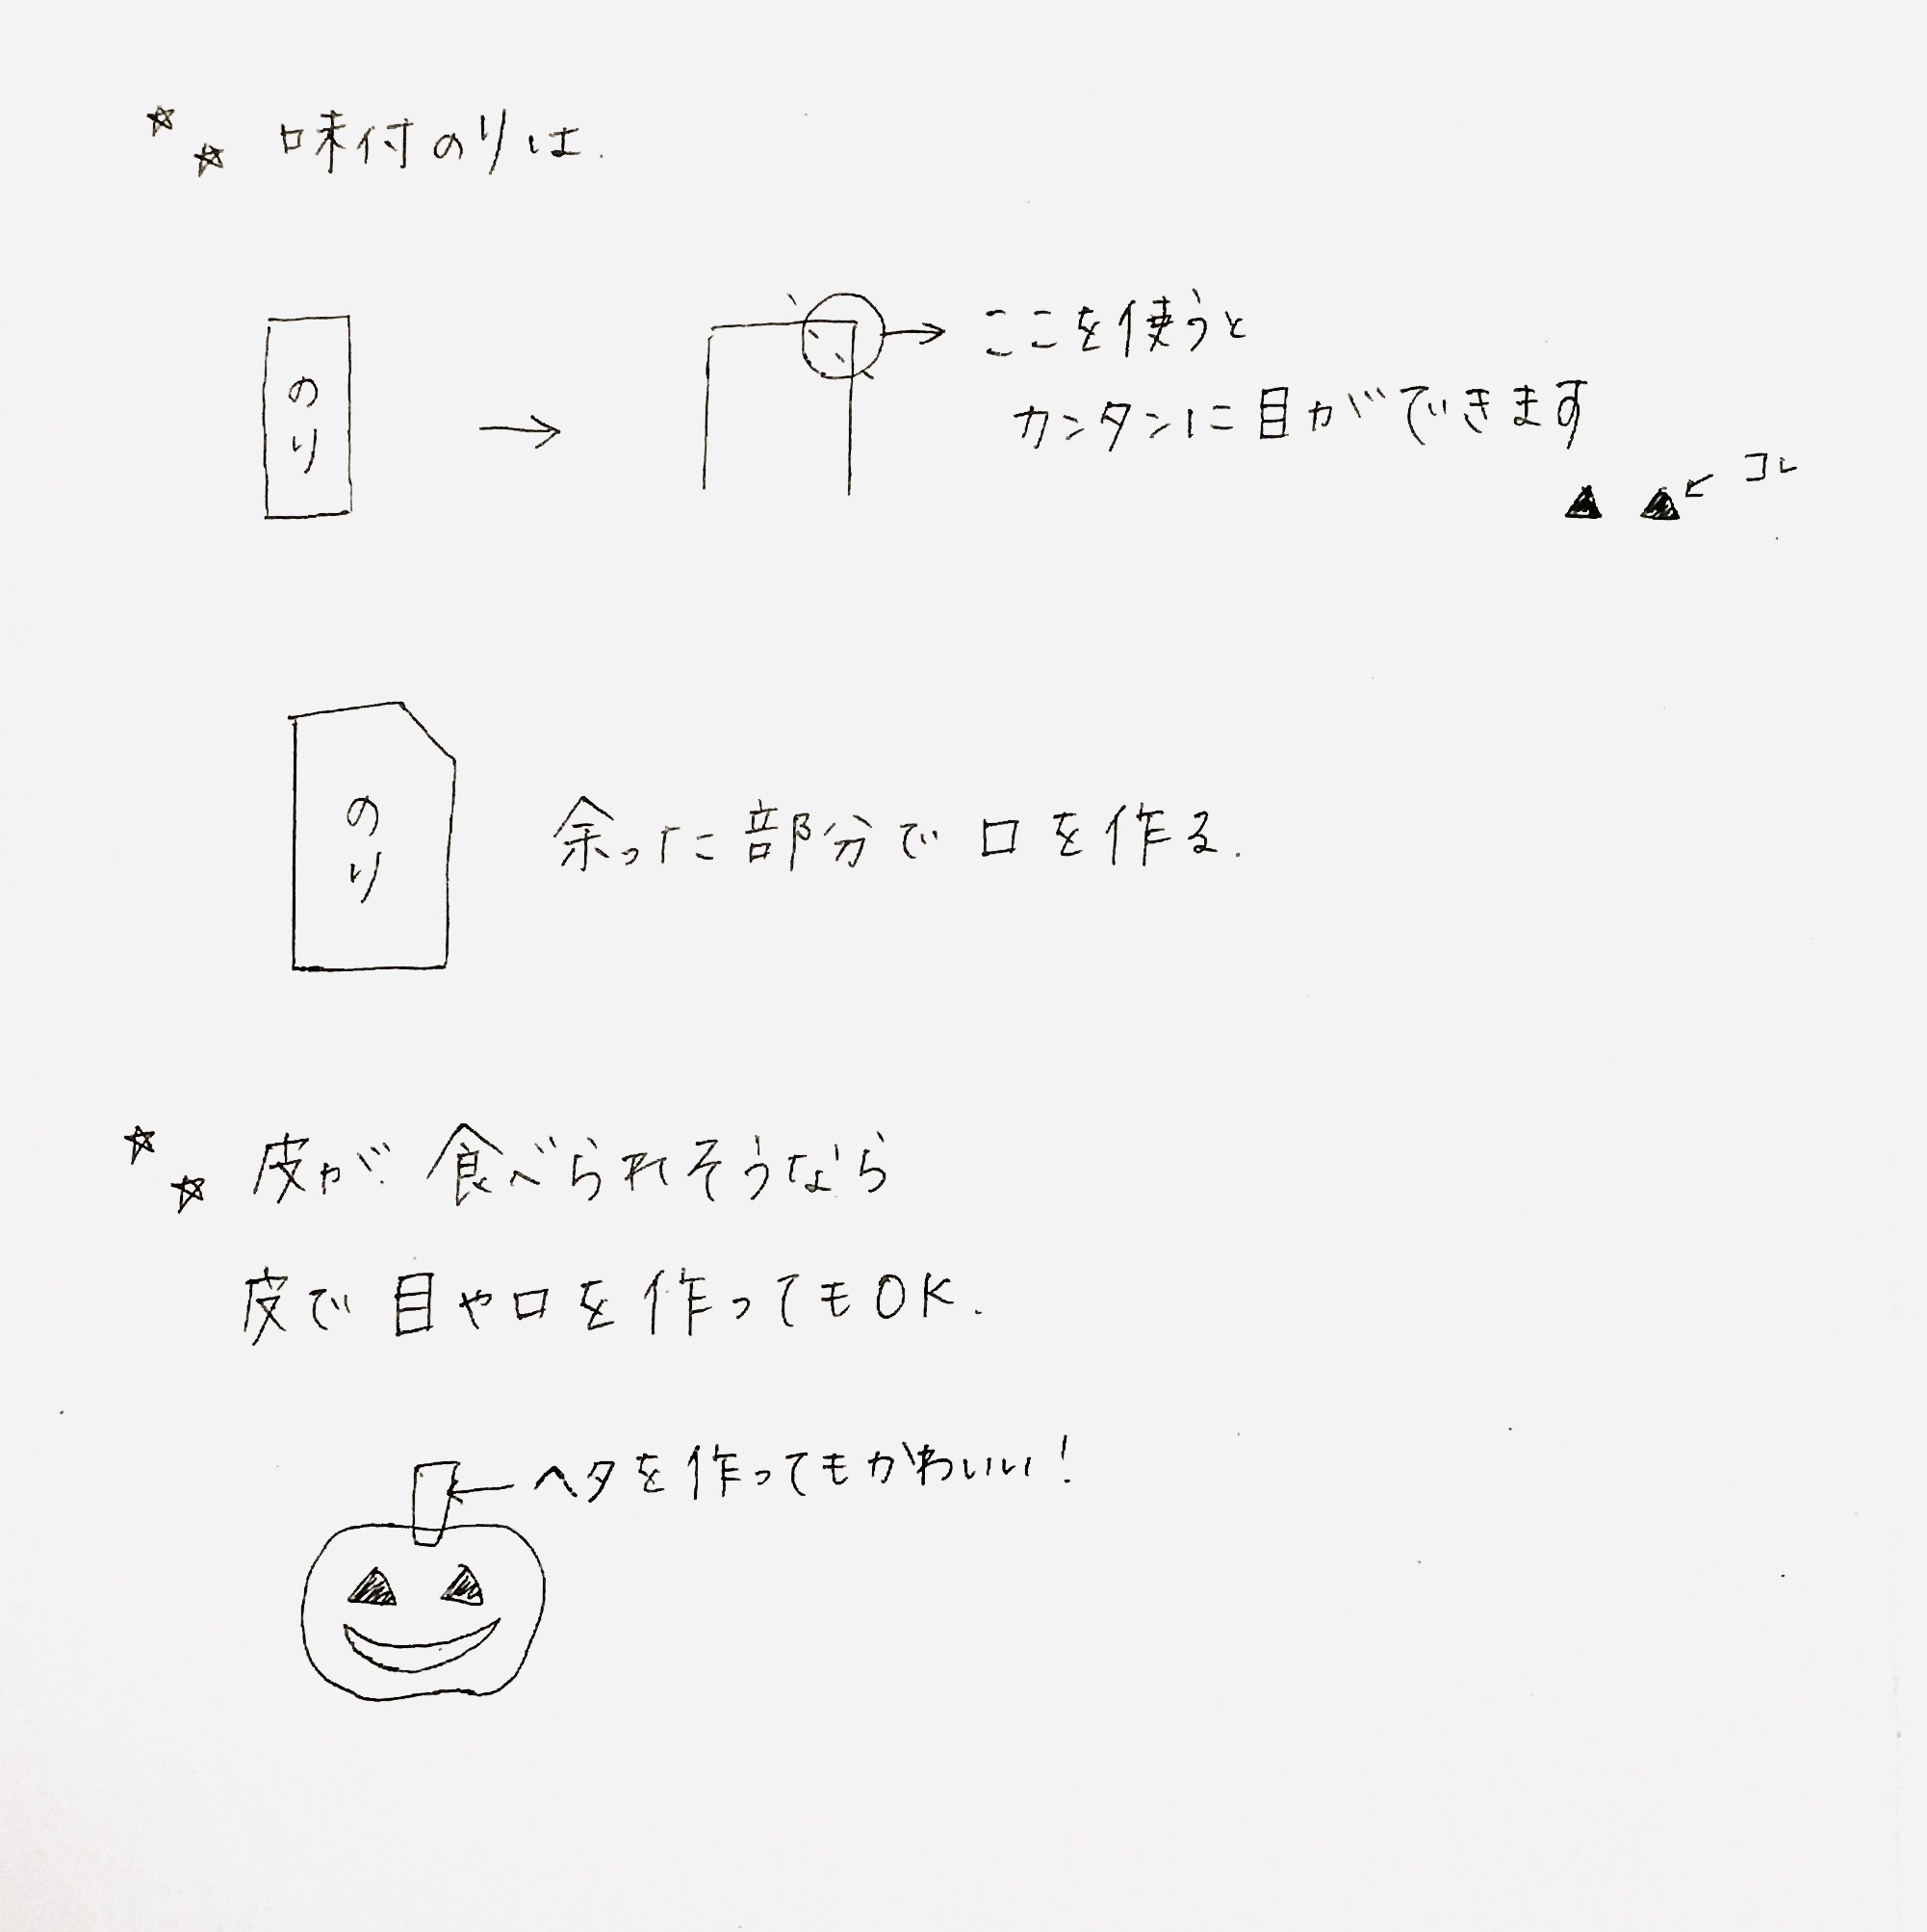 ☆☆ 味付のりは.
のり
ここを使うと
カンタンに目ができます
コレ
のり
余った部分で口を作る.
☆☆ 皮が食べられそうなら
皮で目や口を作ってもOK.
ヘタを作ってもかわいい!